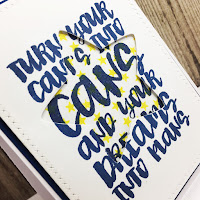 TURN YOUR
CAN'TS INTO
CANS
AND YOUR
DREAMS
INTO PLANS